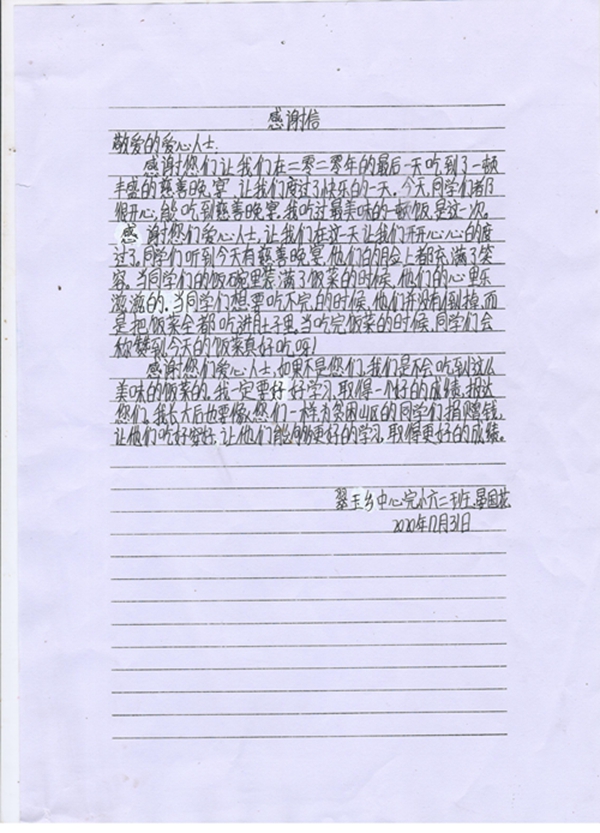 感谢信
敬爱的爱心人士:
感谢您们让我们在二零二零年的最后一天吃到了一顿
丰盛的慈善晚宴,让我们度过了快乐的一天。今天,同学们都
很开心,能吃到慈善晚宴。我吃过最美味的一顿饭,是这一次。
感谢您们爱心人士,让我们在这一天让我们开开心心的度
过了,同学们听到今天有慈善晚宴,他们的脸上都充满了笑
容。当同学们的饭碗里装满了饭菜的时候,他们的心里乐
滋滋的。当同学们想要吃不完的时候,他们并没有倒掉,而
是把饭菜全都吃进肚子里。当吃完饭菜的时候,同学们会
称赞到,今天的饭菜真好吃呀!
感谢您们爱心人士,如果不是您们,我们是不会吃到这么
美味的饭菜的。我一定要好好学习,取得一个好的成绩,报达
您们。我长大后也要像您们一样为贫困山区的同学们捐赠钱,
让他们吃好穿好,让他们能够更好的学习,取得更好的成绩。
翠玉乡中心完小六二班:国花
2020年12月31日